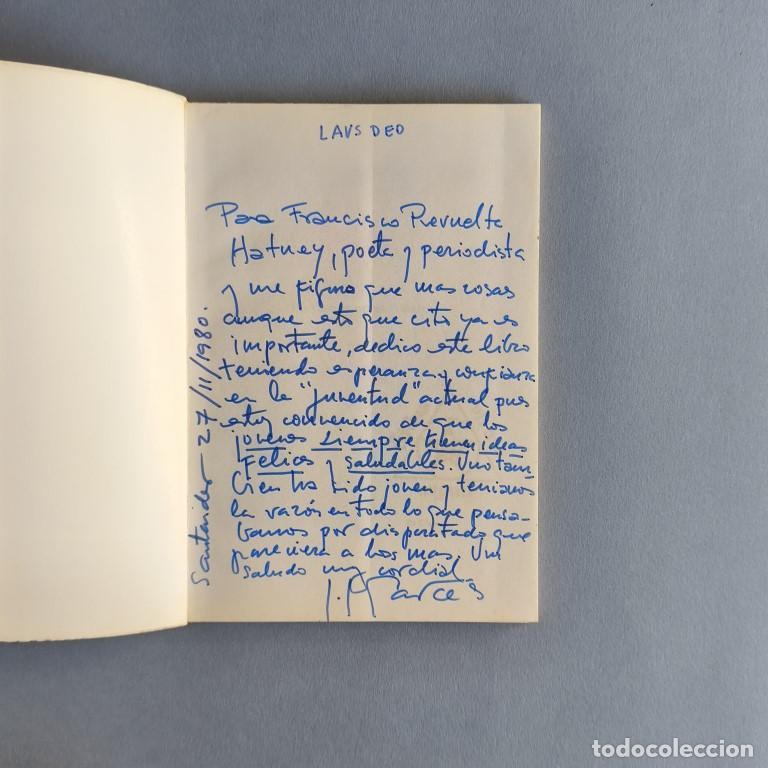 LAUS DEO
Para Francisco Revuelta
Hatuey, poeta y periodista
y me figuro que mas cosas
aunque esto que cito ya es
importante, dedico este libro
teniendo esperanza y confianza
en la "juventud" actual pues
estoy convencido de que los
jovenes siempre tienen ideas
felices y saludables. Uno tam-
bien ha sido joven y teniamos
la razón en todo lo que pensa-
bamos por disparatado que
pareciera a los mas. Un
saludo muy cordial
Santander 27/11/1980.
todocoleccion